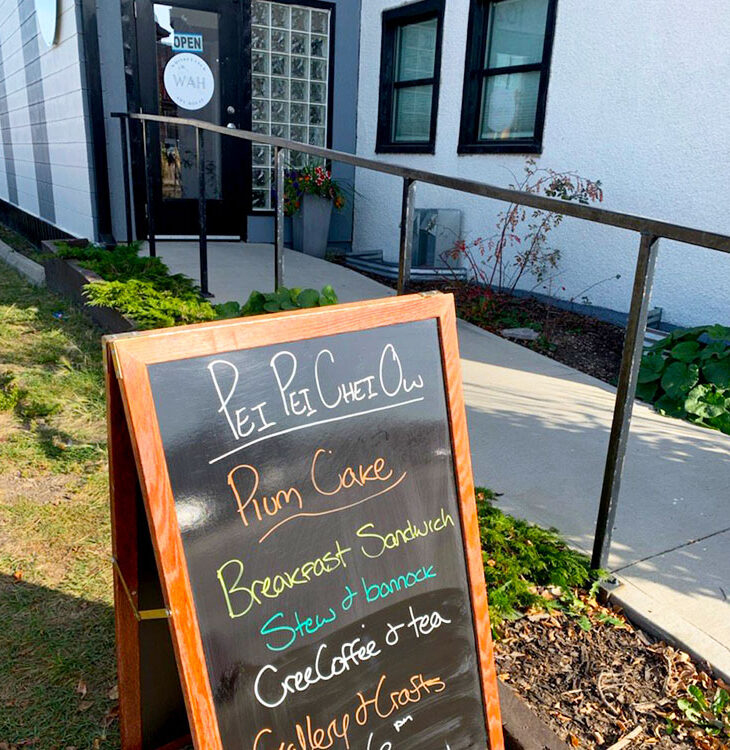 OPEN
WAH
PEI PEI CHEI OW
Plum Cake
Breakfast Sandwich
Stew & bannock
Cree Coffee & tea
Gallery & Crafts
pm